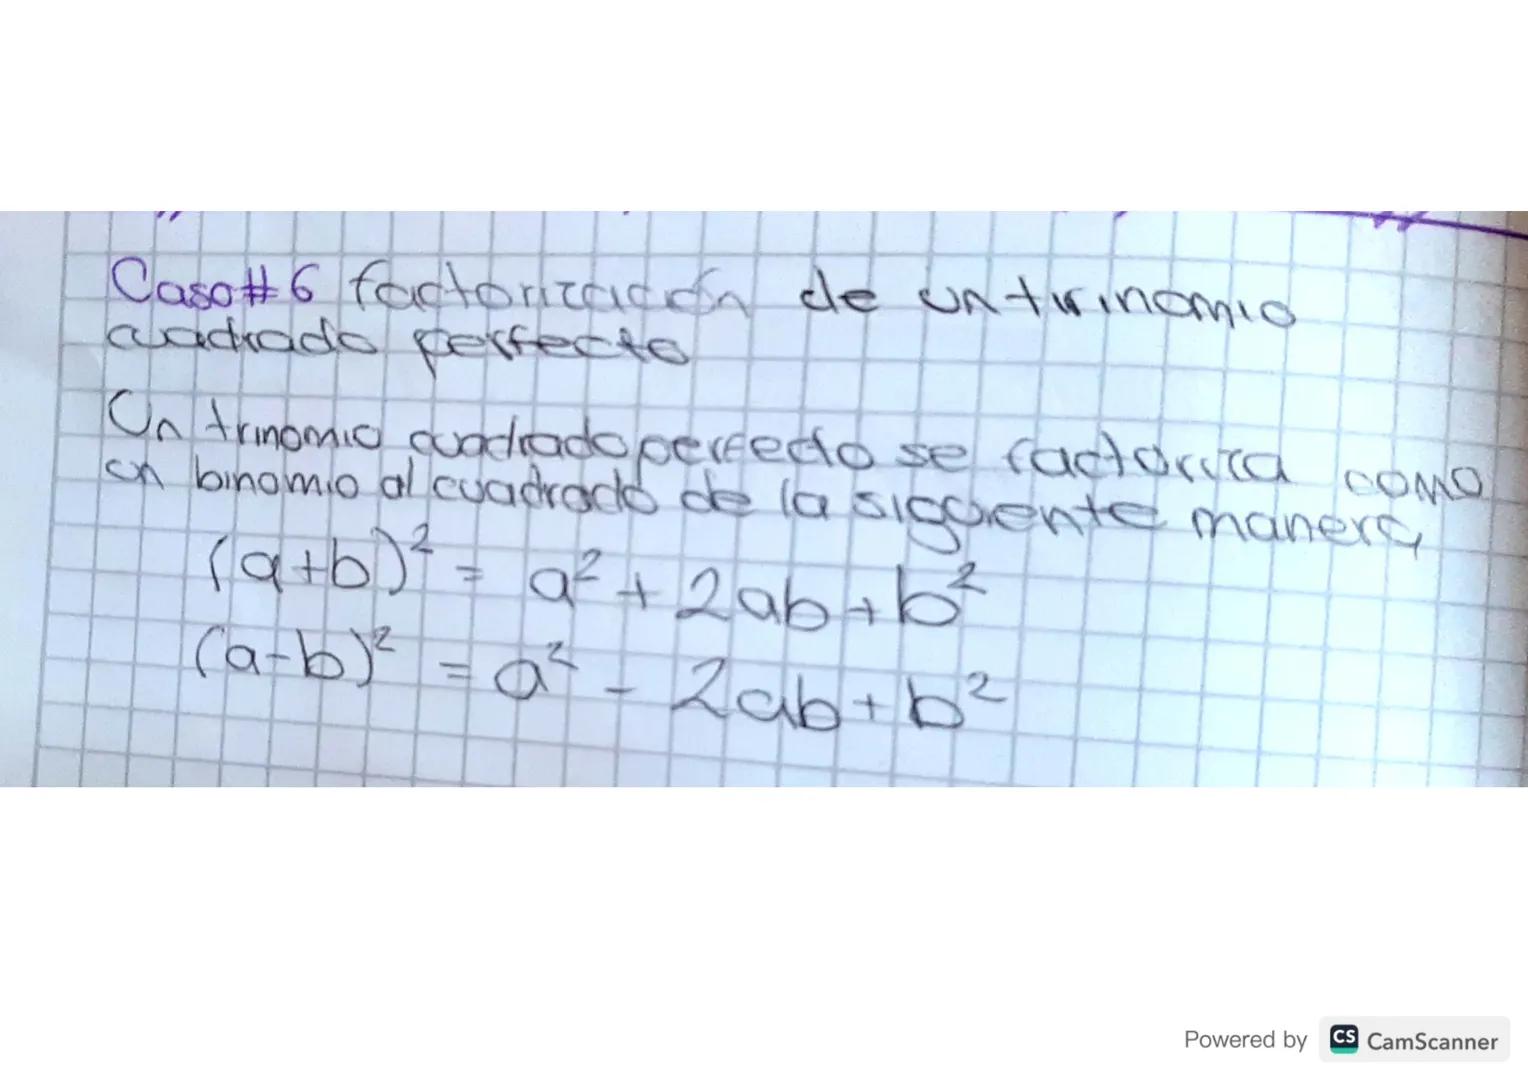 Caso #6 factorización de un trinomio
cuadrado perfecto
Un trinomio cuadrado perfecto se factoriza como
un binomio al cuadrado de la siguiente manera
(a+b)² = a² + 2ab + b²
(a-b)² = a² - 2ab + b²
Powered by CS CamScanner